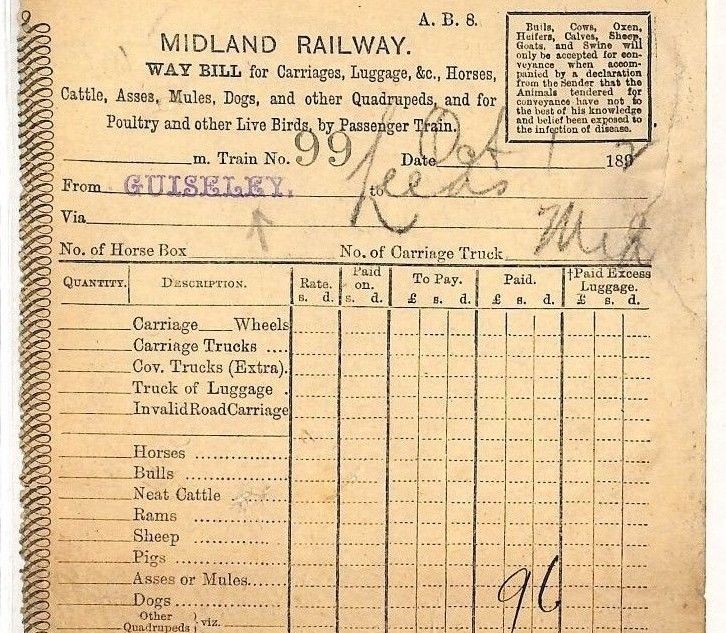 A. B. 8.
MIDLAND RAILWAY.
WAY BILL for Carriages, Luggage, &c., Horses,
Cattle, Asses, Mules, Dogs, and other Quadrupeds, and for
Poultry and other Live Birds, by Passenger Train.
Bulls, Cows, Oxen,
Heifers, Calves, Sheep,
Goats, and Swine will
only be accepted for con-
veyance when accom-
panied by a declaration
from the Sender that the
Animals tendered for
conveyance have not to
the best of his knowledge
and belief been exposed to
the infection of disease.
m. Train No. 99 Date Oct 1 1892
From GUISELEY. to Leeds
Via
No. of Horse Box No. of Carriage Truck Mid
QUANTITY. DESCRIPTION. Rate. Paid on. To Pay. Paid. †Paid Excess Luggage.
s. d. s. d. £ s. d. £ s. d. £ s. d.
Carriage Wheels
Carriage Trucks ....
Cov. Trucks (Extra).
Truck of Luggage .
Invalid Road Carriage
Horses
Bulls
Neat Cattle
Rams
Sheep
Pigs
Asses or Mules......
Dogs 96
Other Quadrupeds } viz.